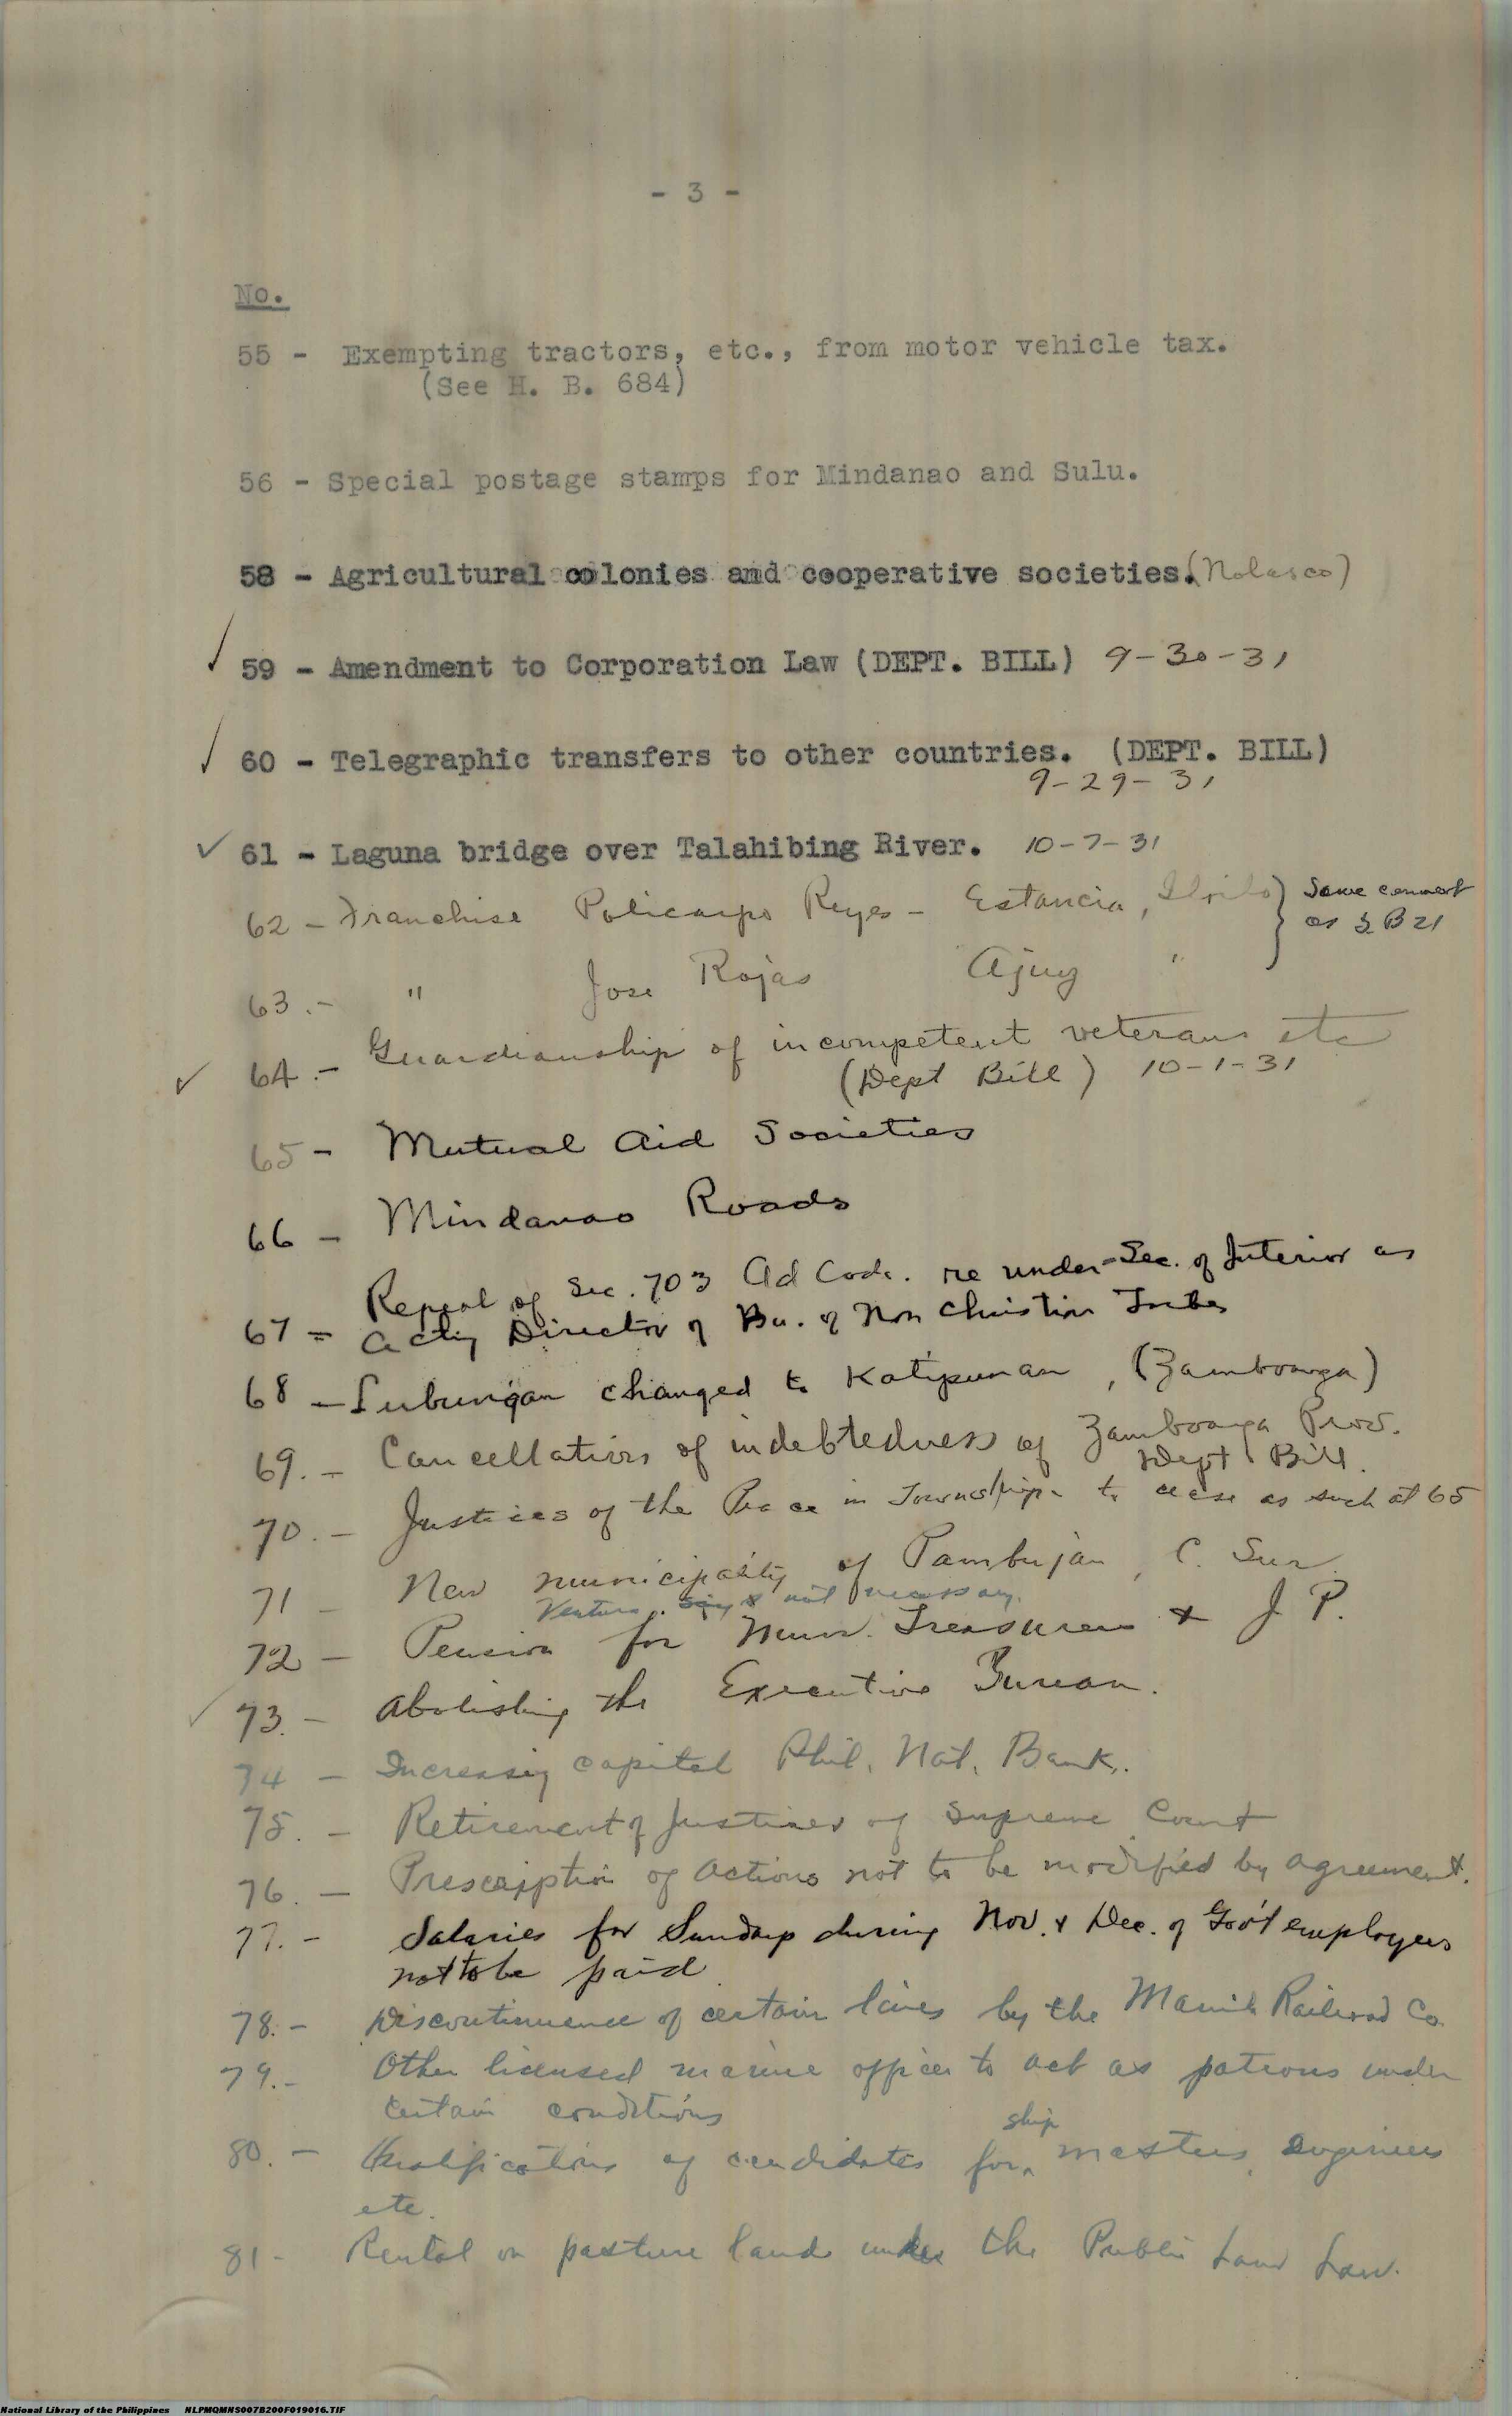 - 3 -
No.
55 - Exempting tractors, etc., from motor vehicle tax.
(See H. B. 684)
56 - Special postage stamps for Mindanao and Sulu.
58 - Agricultural colonies and cooperative societies. (Nolasco)
✓ 59 - Amendment to Corporation Law (DEPT. BILL) 9-30-31
✓ 60 - Telegraphic transfers to other countries. (DEPT. BILL)
9-29-31
✓ 61 - Laguna bridge over Talahibing River. 10-7-31
62 - Franchise Policarpo Reyes - Estancia, Iloilo } Same comment
as S B 21
63.- " Jose Rojas Ajuy "
✓ 64.- Guardianship of incompetent veterans etc
(Dept Bill) 10-1-31
65 - Mutual Aid Societies
66 - Mindanao Roads
Repeal of Sec. 703 Ad Code. re under-Sec. of Interior as
67 = Acting Director of Bu. of Non Christian Tribes
68 - Lubungan changed to Katipunan, (Zamboanga)
69.- Cancellation of indebtedness of Zamboanga Prov.
Dept Bill.
70.- Justices of the Peace in Townships to cease as such at 65
71 - New municipality of Pambujan, C. Sur
Ventura. not necessary.
72 - Pension for Mun. Treasurers & J. P.
✓ 73.- Abolishing the Executive Bureau.
74 - Increasing capital Phil. Nat. Bank.
75.- Retirement of Justices of Supreme Court
76.- Prescription of actions not to be modified by agreement.
77.- Salaries for Sundays during Nov. & Dec. of Gov't employees
not to be paid
78.- Discontinuance of certain lines by the Manila Railroad Co.
79.- Other licensed marine officers to act as patrons under
certain conditions
ship
80.- Qualifications of candidates for masters, engineers
etc.
81- Rental on pasture lands under the Public Land Law.
National Library of the Philippines NLPMQMNS007B200F019016.TIF